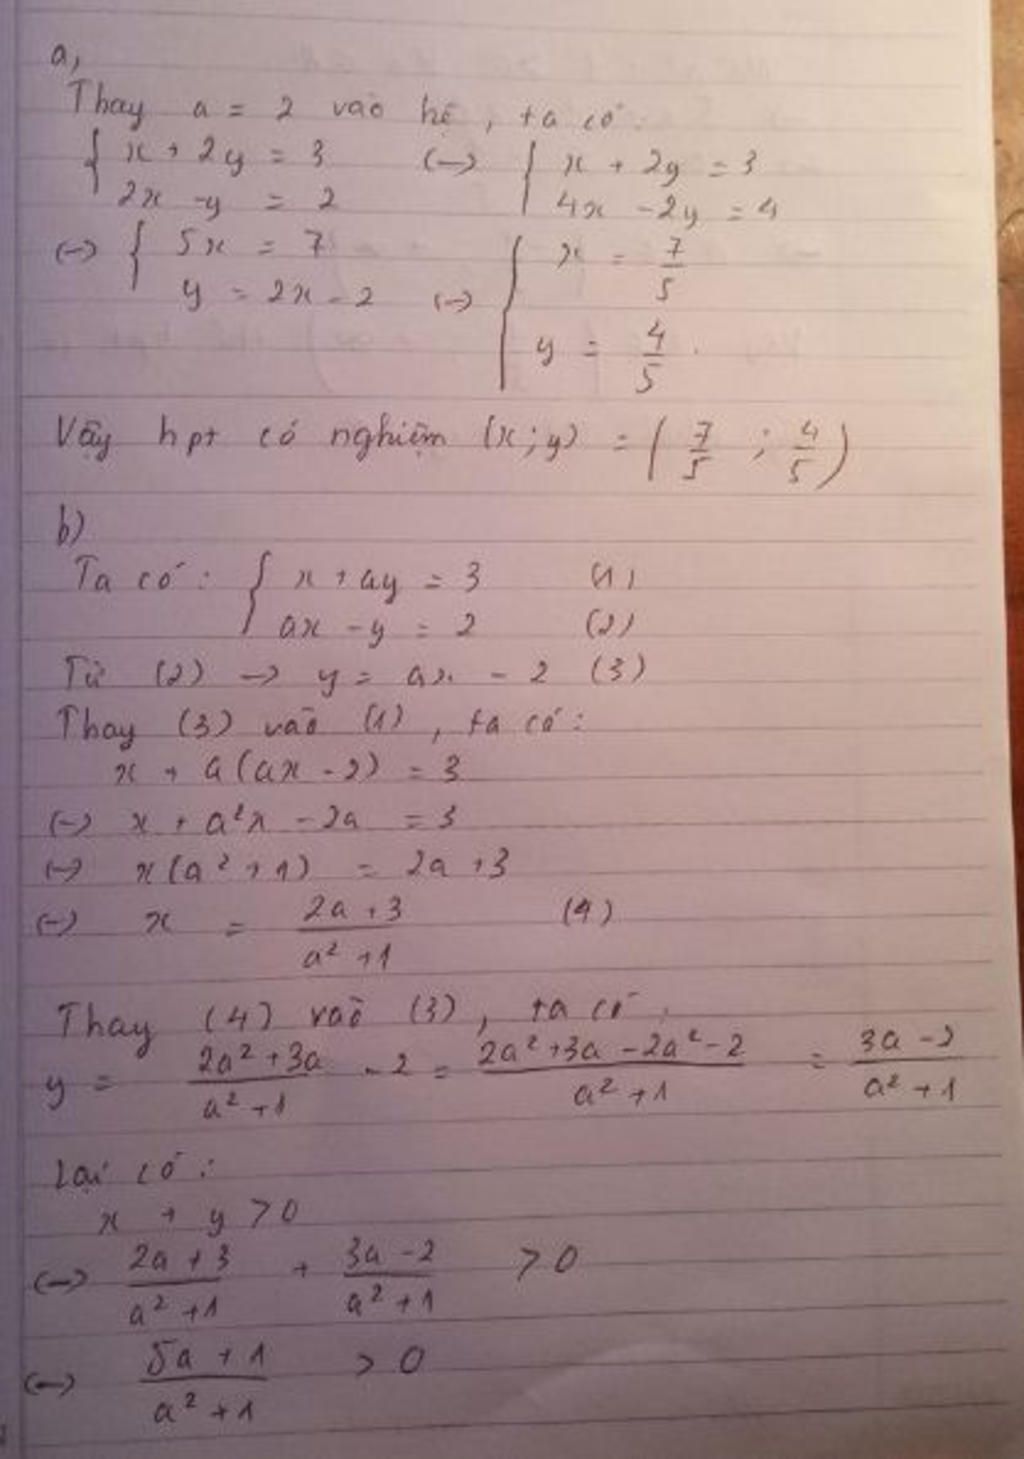 a,
Thay a = 2 vào hệ, ta có:
{ x + 2y = 3 <-> { x + 2y = 3
2x - y = 2 4x - 2y = 4
<-> { 5x = 7 { x = 7/5
y = 2x - 2 <-> y = 4/5.
Vậy hpt có nghiệm (x; y) = (7/5 ; 4/5)
b)
Ta có: { x + ay = 3 (1)
ax - y = 2 (2)
Từ (2) -> y = ax - 2 (3)
Thay (3) vào (1), ta có:
x + a(ax - 2) = 3
<-> x + a²x - 2a = 3
<-> x(a² + 1) = 2a + 3
<-> x = (2a + 3)/(a² + 1) (4)
Thay (4) vào (3), ta có
y = (2a² + 3a)/(a² + 1) - 2 = (2a² + 3a - 2a² - 2)/(a² + 1) = (3a - 2)/(a² + 1)
Lại có:
x + y > 0
<-> (2a + 3)/(a² + 1) + (3a - 2)/(a² + 1) > 0
<-> (5a + 1)/(a² + 1) > 0